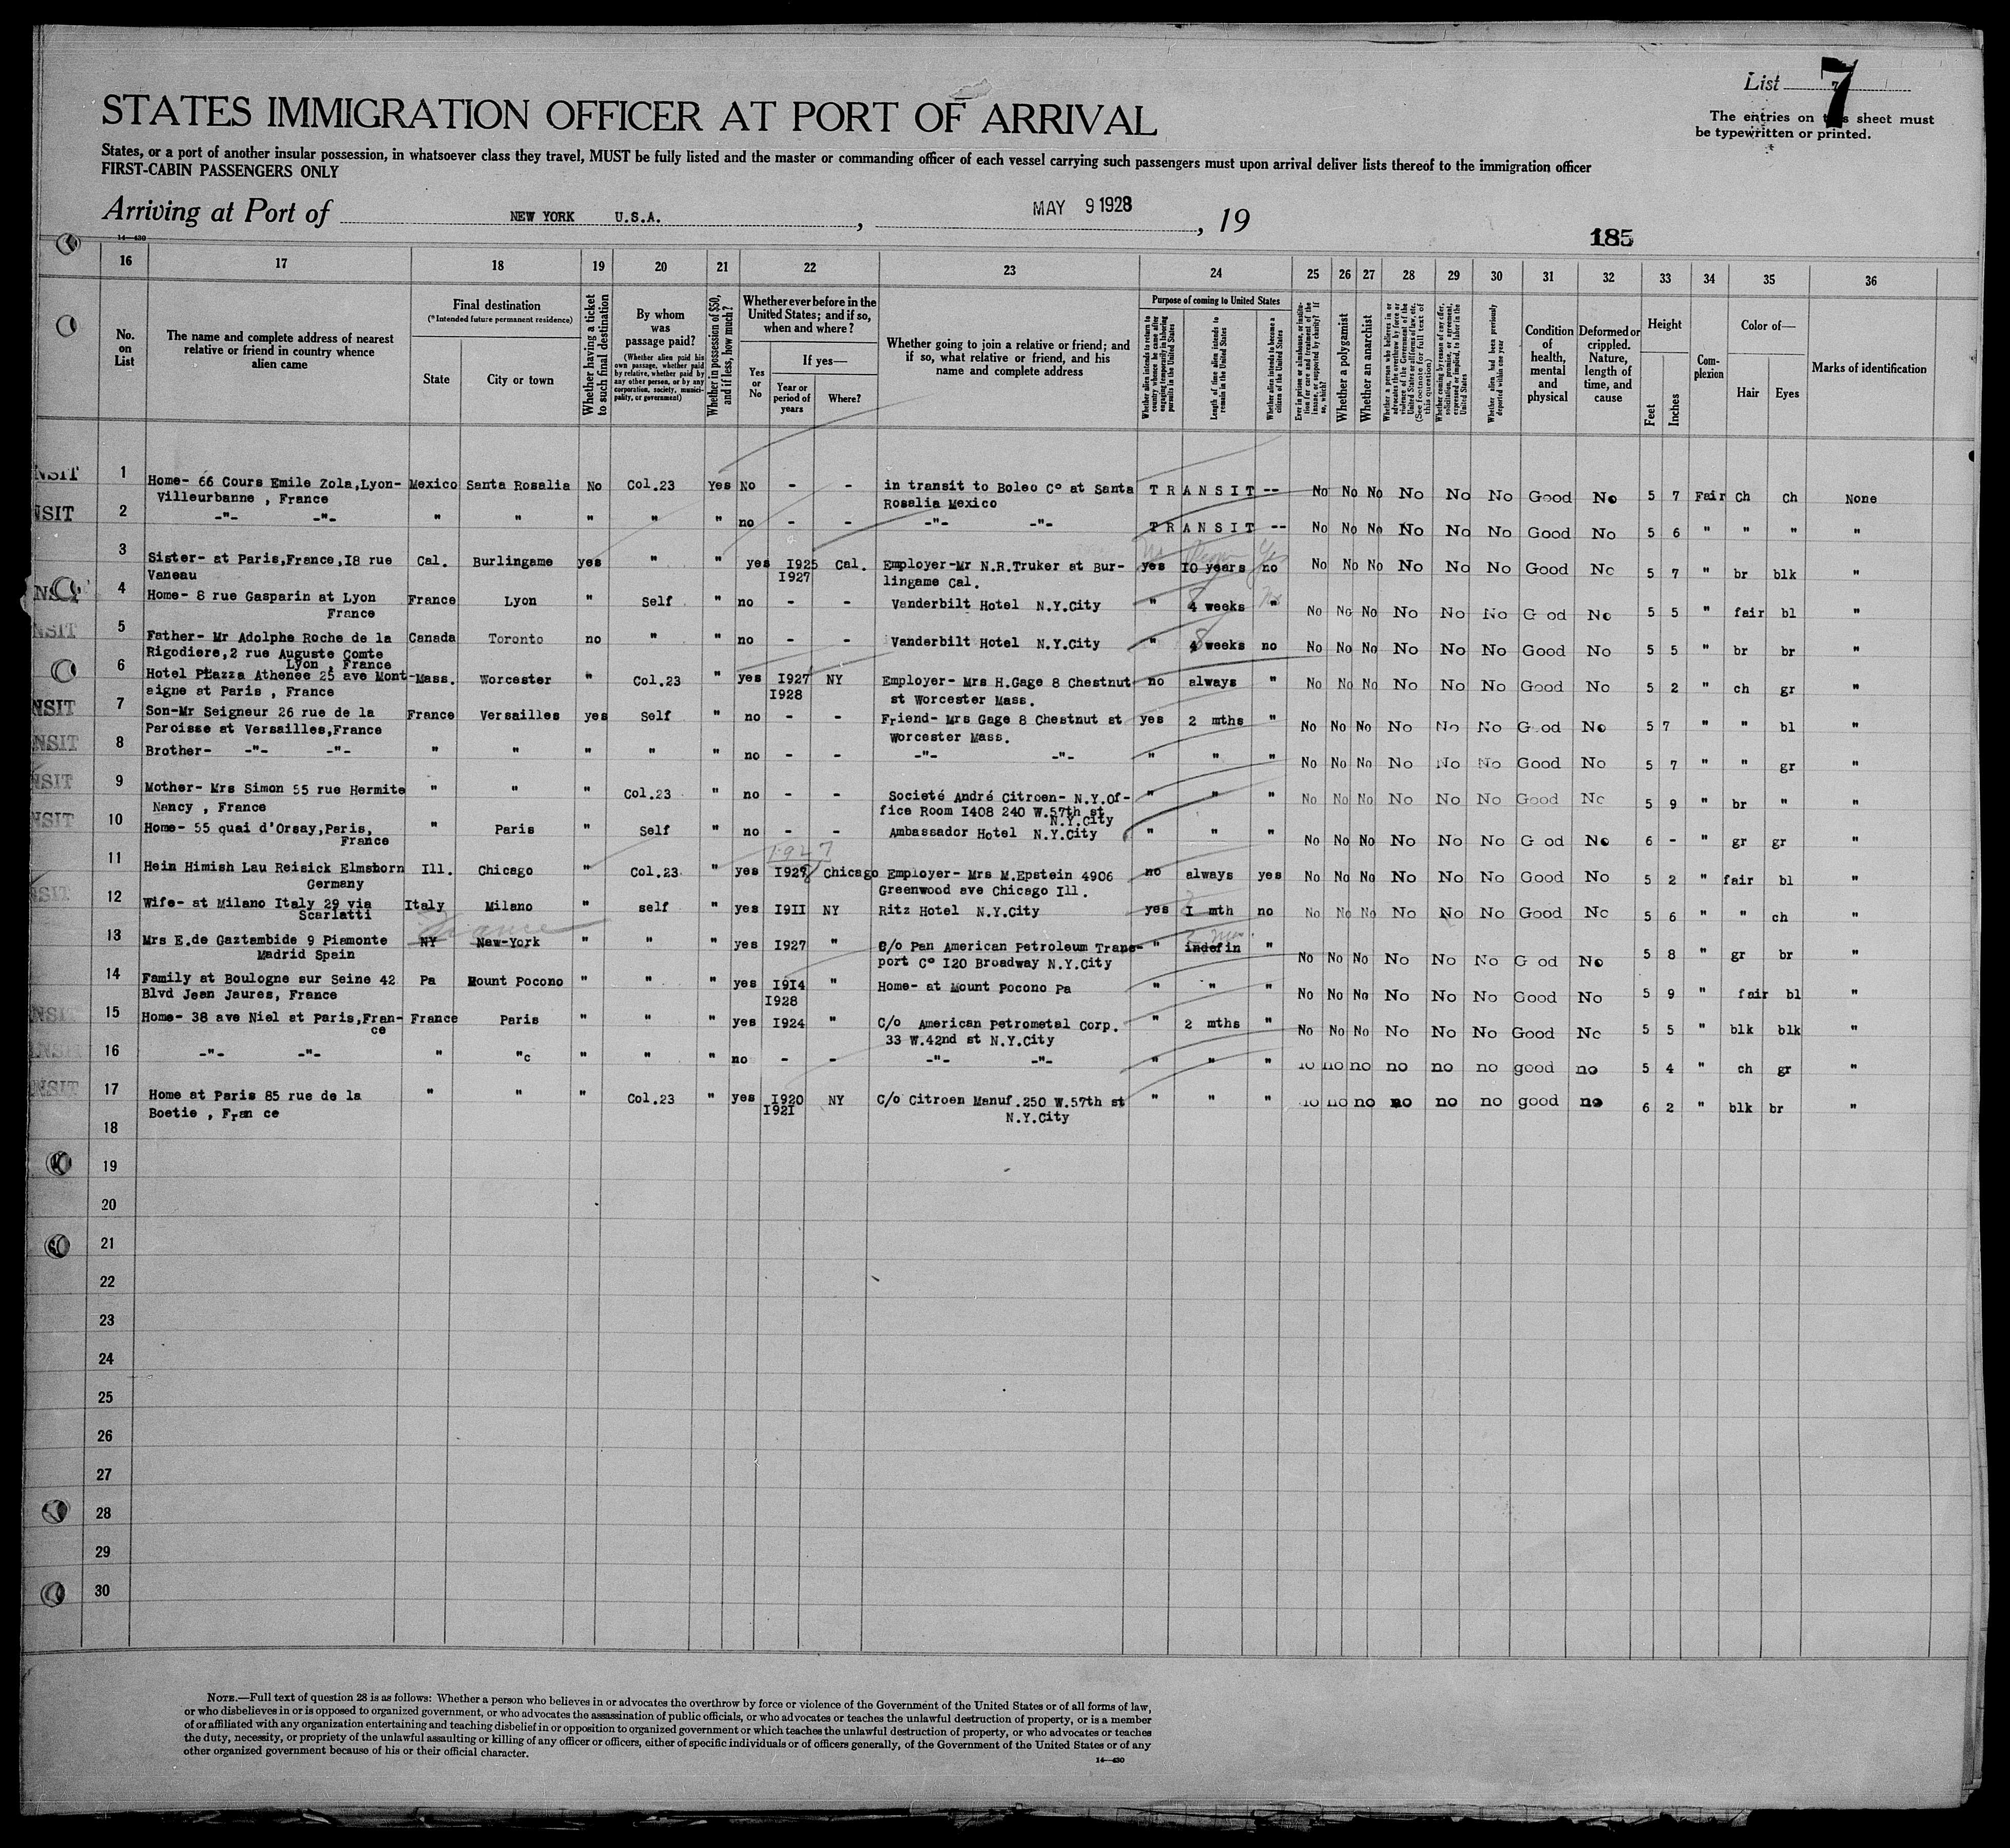 List 7
STATES IMMIGRATION OFFICER AT PORT OF ARRIVAL
The entries on this sheet must
be typewritten or printed.
States, or a port of another insular possession, in whatsoever class they travel, MUST be fully listed and the master or commanding officer of each vessel carrying such passengers must upon arrival deliver lists thereof to the immigration officer
FIRST-CABIN PASSENGERS ONLY
Arriving at Port of NEW YORK U.S.A. , MAY 9 1928 , 19
185
14—430
16 17 18 19 20 21 22 23 24 25 26 27 28 29 30 31 32 33 34 35 36
No. on List
The name and complete address of nearest relative or friend in country whence alien came
Final destination
(*Intended future permanent residence)
State
City or town
Whether having a ticket to such final destination
By whom was passage paid?
(Whether alien paid his own passage, whether paid by relative, whether paid by any other person, or by any corporation, society, municipality, or government)
Whether in possession of $50, and if less, how much?
Whether ever before in the United States; and if so, when and where?
Yes or No
If yes—
Year or period of years
Where?
Whether going to join a relative or friend; and if so, what relative or friend, and his name and complete address
Purpose of coming to United States
Whether alien intends to return to country whence he came after engaging temporarily in laboring pursuits in the United States
Length of time alien intends to remain in the United States
Whether alien intends to become a citizen of the United States
Ever in prison or almshouse, or institution for care and treatment of the insane, or supported by charity? If so, which?
Whether a polygamist
Whether an anarchist
Whether a person who believes in or advocates the overthrow by force or violence of the Government of the United States or all forms of law, etc. (See footnote for full text of this question)
Whether coming by reason of any offer, solicitation, promise, or agreement, expressed or implied, to labor in the United States
Whether alien had been previously deported within one year
Condition of health, mental and physical
Deformed or crippled. Nature, length of time, and cause
Height
Feet
Inches
Complexion
Color of—
Hair
Eyes
Marks of identification
NSIT 1 Home- 66 Cours Emile Zola,Lyon- Mexico Santa Rosalia No Col.23 Yes No - - in transit to Boleo C° at Santa TRANSIT -- No No No No No No Good No 5 7 Fair Ch Ch None
Villeurbanne , France Rosalia Mexico
NSIT 2 -"- -"- " " " " " no - - -"- -"- TRANSIT -- No No No No No No Good No 5 6 " " " "
3 Sister- at Paris,France,I8 rue Cal. Burlingame yes " " yes I925 Cal. Employer-Mr N.R.Truker at Bur- yes I0 years no No No No No No No Good No 5 7 " br blk "
Vaneau I927 lingame Cal. Yes
NSIT 4 Home- 8 rue Gasparin at Lyon France Lyon " Self " no - - Vanderbilt Hotel N.Y.City " 4 weeks " No No No No No No G od No 5 5 " fair bl "
France
NSIT 5 Father- Mr Adolphe Roche de la Canada Toronto no " " no - - Vanderbilt Hotel N.Y.City " 4 weeks no No No No No No No Good No 5 5 " br br "
Rigodiere,2 rue Auguste Comte
Lyon , France
6 Hotel Plazza Athenee 25 ave Mont- Mass. Worcester " Col.23 " yes I927 NY Employer- Mrs H.Gage 8 Chestnut no always " No No No No No No Good No 5 2 " ch gr "
aigne at Paris , France I928 st Worcester Mass.
NSIT 7 Son-Mr Seigneur 26 rue de la France Versailles yes Self " no - - Friend- Mrs Gage 8 Chestnut st yes 2 mths " No No No No No No G od No 5 7 " " bl "
Paroisse at Versailles,France Worcester Mass.
NSIT 8 Brother- -"- -"- " " " " " no - - -"- -"- " " " No No No No No No Good No 5 7 " " gr "
NSIT 9 Mother- Mrs Simon 55 rue Hermite " " " Col.23 " no - - Societé André Citroen- N.Y.Of- " " " No No No No No No Good No 5 9 " br " "
Nancy , France fice Room I408 240 W.57th st
N.Y.City
NSIT 10 Home- 55 quai d'Orsay,Paris, " Paris " Self " no - - Ambassador Hotel N.Y.City " " " No No No No No No G od No 6 - " gr gr "
France
1927
11 Hein Himish Lau Reisick Elmshorn Ill. Chicago " Col.23 " yes I928 Chicago Employer- Mrs M.Epstein 4906 no always yes No No No No No No Good No 5 2 " fair bl "
Germany Greenwood ave Chicago Ill.
NSIT 12 Wife- at Milano Italy 29 via Italy Milano " self " yes I9II NY Ritz Hotel N.Y.City yes I mth no No No No No No No Good No 5 6 " " ch "
Scarlatti
France
13 Mrs E.de Gaztambide 9 Piamonte NY New-York " " " yes I927 " C/o Pan American Petroleum Trans- " indefin " No No No No No No G od No 5 8 " gr br "
Madrid Spain port C° I20 Broadway N.Y.City
14 Family at Boulogne sur Seine 42 Pa Mount Pocono " " " yes I9I4 " Home- at Mount Pocono Pa " " " No No No No No No Good No 5 9 " fair bl "
Blvd Jean Jaures, France I928
NSIT 15 Home- 38 ave Niel at Paris,Fran- France Paris " " " yes I924 " C/o American Petrometal Corp. " 2 mths " No No No No No No Good No 5 5 " blk blk "
ce 33 W.42nd st N.Y.City
NSIT 16 -"- -"- " "c " " " no - - -"- -"- " " " no no no no no no good no 5 4 " ch gr "
NSIT 17 Home at Paris 85 rue de la " " " Col.23 " yes I920 NY C/o Citroen Manuf.250 W.57th st " " " no no no no no no good no 6 2 " blk br "
Boetie , Fran ce I92I N.Y.City
18
19
20
21
22
23
24
25
26
27
28
29
30
NOTE.—Full text of question 28 is as follows: Whether a person who believes in or advocates the overthrow by force or violence of the Government of the United States or of all forms of law,
or who disbelieves in or is opposed to organized government, or who advocates the assassination of public officials, or who advocates or teaches the unlawful destruction of property, or is a member
of or affiliated with any organization entertaining and teaching disbelief in or opposition to organized government or which teaches the unlawful destruction of property, or who advocates or teaches
the duty, necessity, or propriety of the unlawful assaulting or killing of any officer or officers, either of specific individuals or of officers generally, of the Government of the United States or of any
other organized government because of his or their official character.
14—430